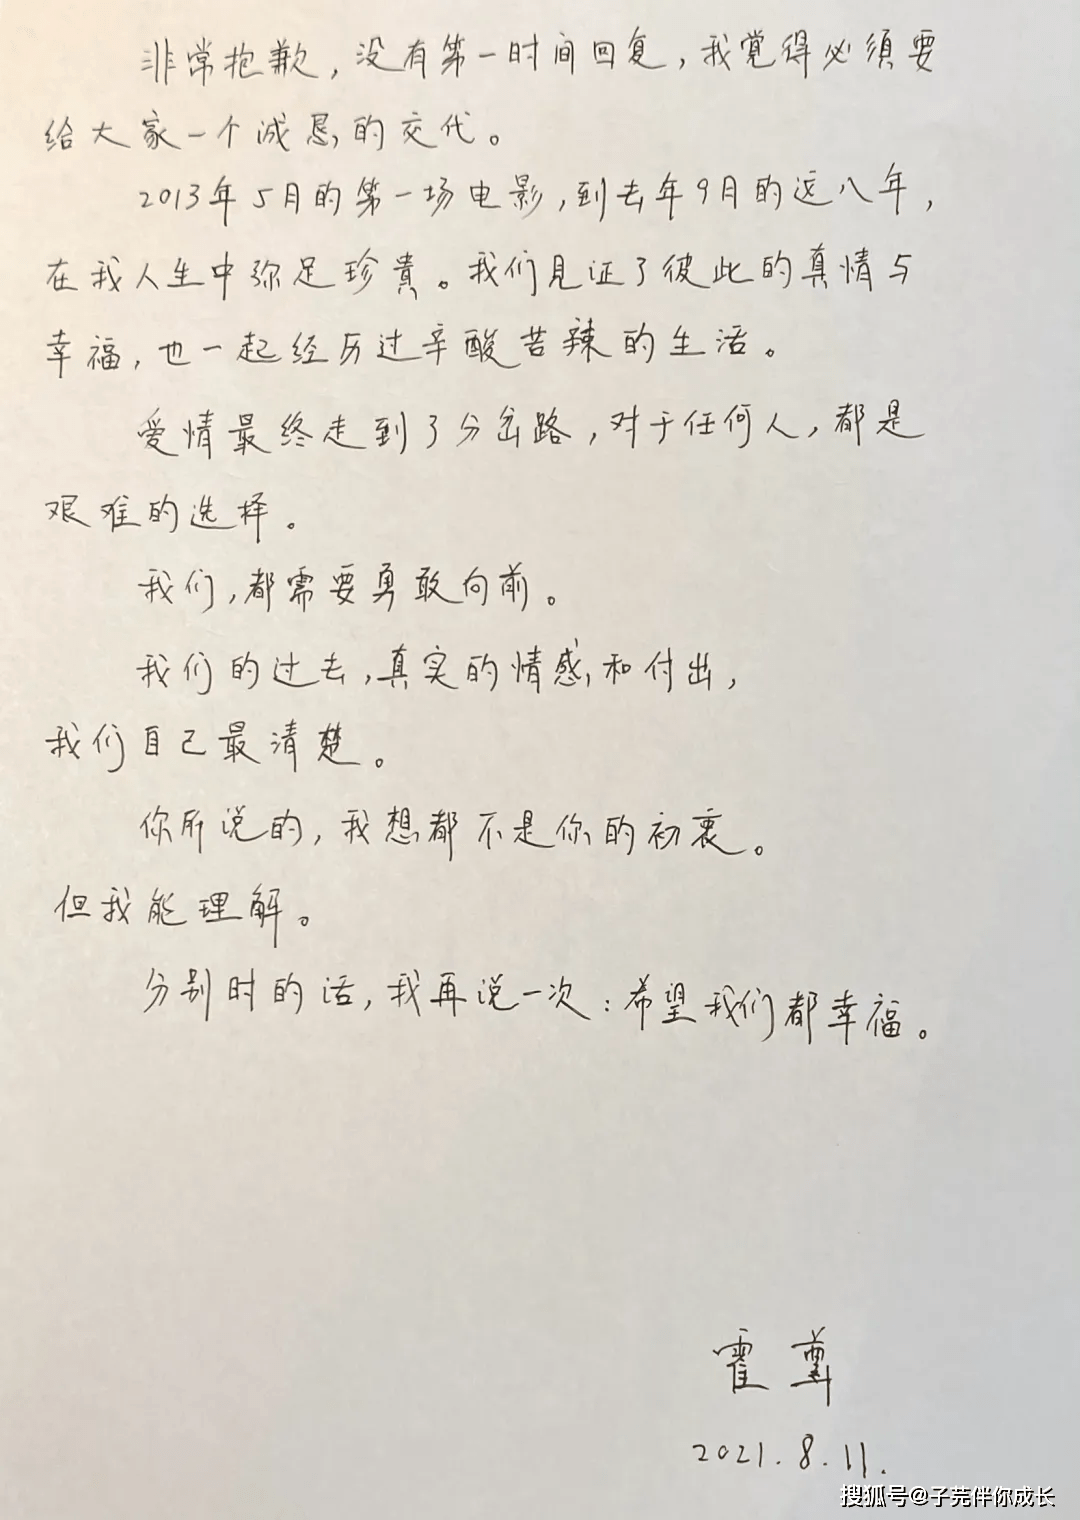 非常抱歉，没有第一时间回复，我觉得必须要
给大家一个诚恳的交代。
2013年5月的第一场电影，到去年9月的这八年，
在我人生中弥足珍贵。我们见证了彼此的真情与
幸福，也一起经历过辛酸苦辣的生活。
爱情最终走到了分岔路，对于任何人，都是
艰难的选择。
我们，都需要勇敢向前。
我们的过去，真实的情感和付出，
我们自己最清楚。
你所说的，我想都不是你的初衷。
但我能理解。
分别时的话，我再说一次：希望我们都幸福。
霍尊
2021.8.11.
搜狐号@子芫伴你成长